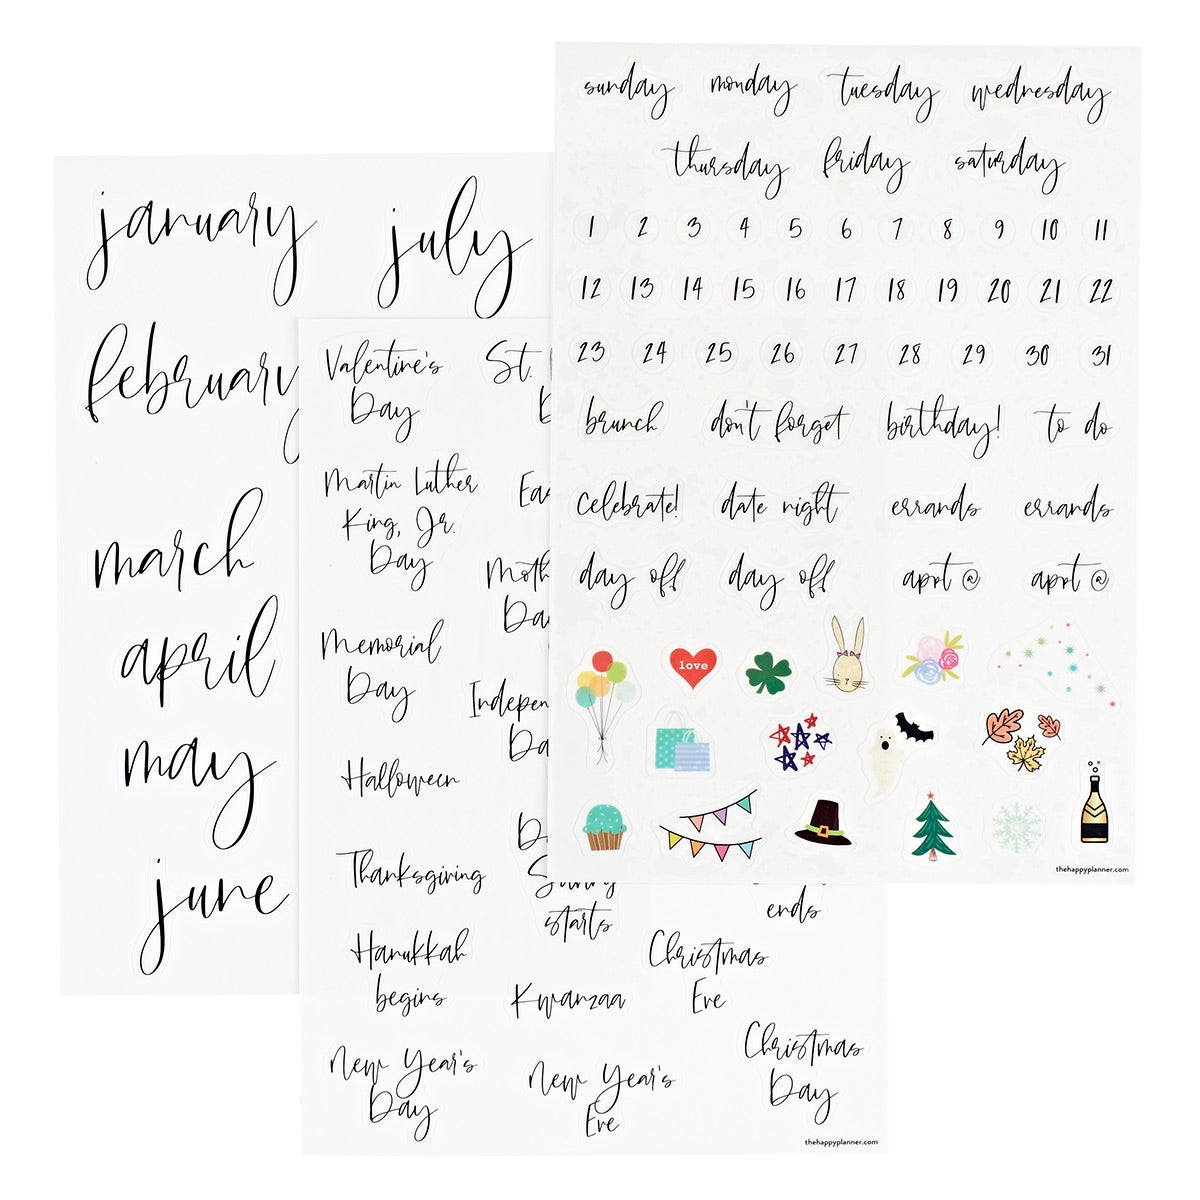 sunday monday tuesday wednesday
thursday friday saturday
1 2 3 4 5 6 7 8 9 10 11
12 13 14 15 16 17 18 19 20 21 22
23 24 25 26 27 28 29 30 31
brunch don't forget birthday! to do
celebrate! date night errands errands
day off day off apnt @ apnt @
love
thehappyplanner.com
january july
february
march
april
may
june
Valentine's
Day
St.
Martin Luther
King, Jr.
Day
Memorial
Day
Day
Halloween
Thanksgiving
starts
ends
Hanukkah
begins
Kwanzaa
Christmas
Eve
New Year's
Day
New Year's
Eve
Christmas
Day
thehappyplanner.com